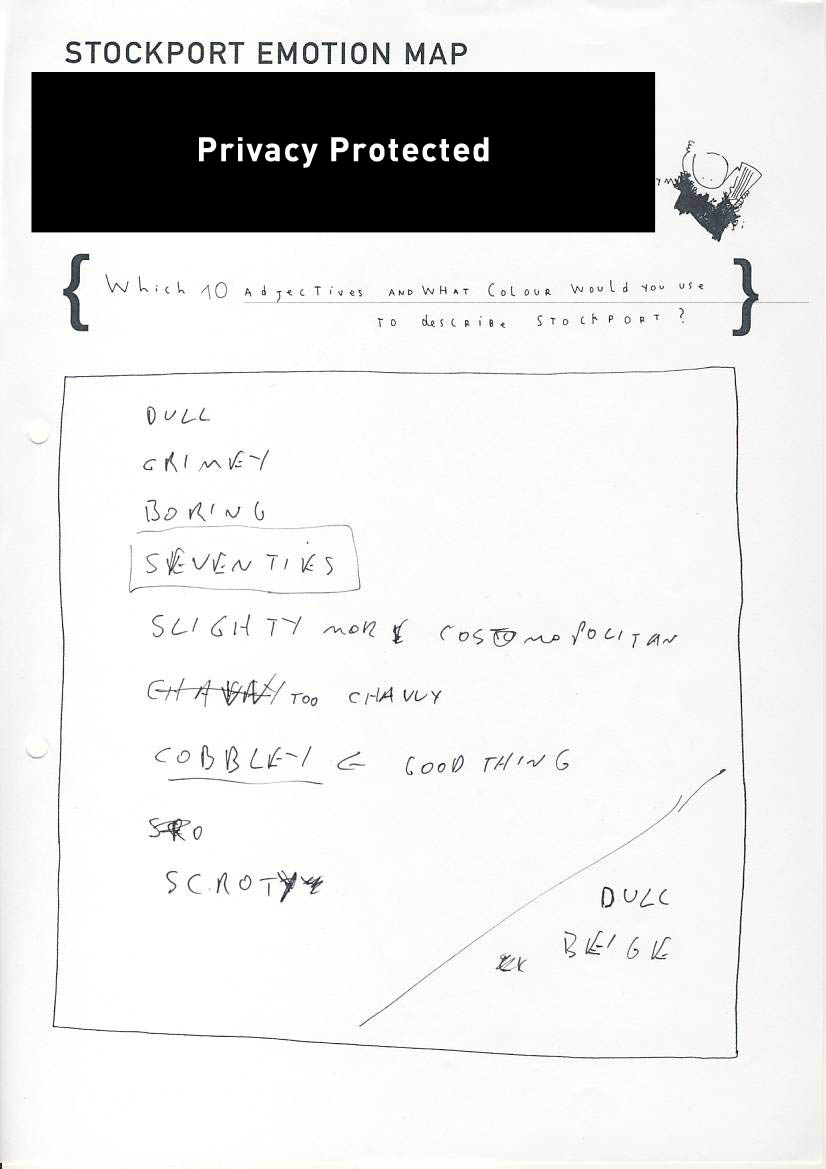 STOCKPORT EMOTION MAP
Privacy Protected
Which 10 AdjecTives AND WHAT COLOUR WOULD YOU USE
TO describe STOCKPORT?
DULL
GRIMEY
BORING
SEVENTIES
SLIGHTY MORE COSTOMOPOLITAN
CHAVVY TOO CHAVVY
COBBLEY ← GOOD THING
SCROTY
DULL
BEIGE